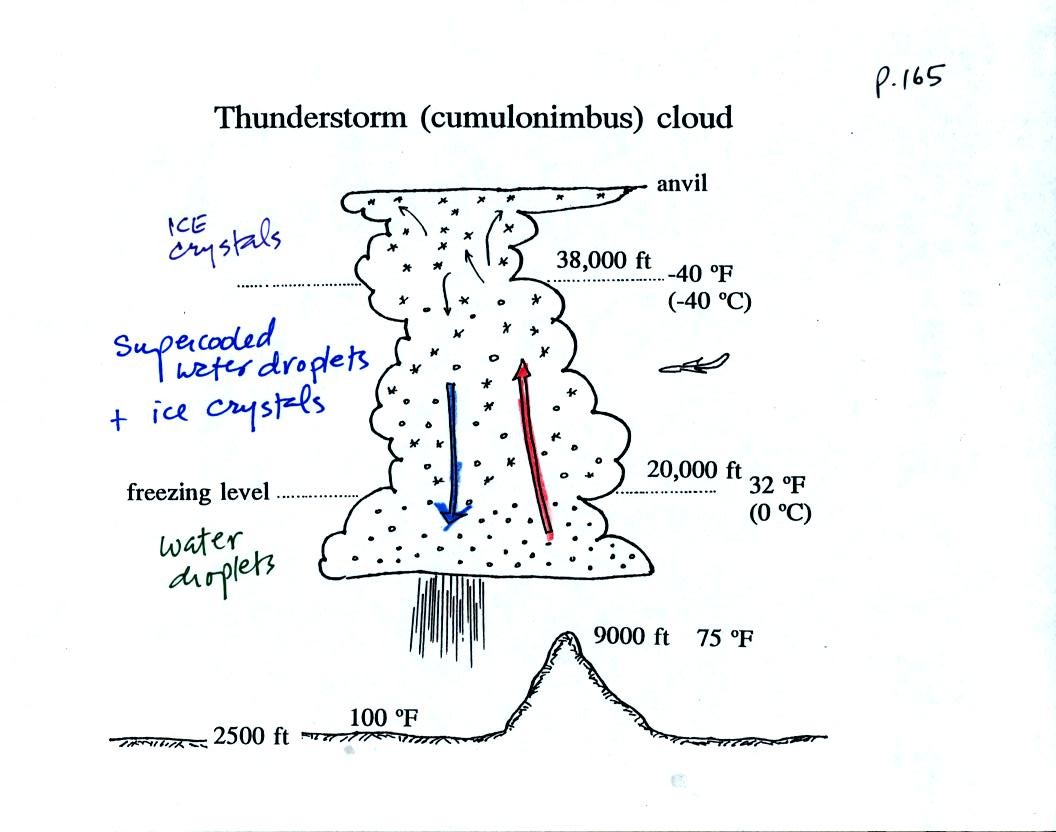 P.165
Thunderstorm (cumulonimbus) cloud
anvil
ICE
crystals
38,000 ft
-40 ºF
(-40 ºC)
Supercooled
water droplets
+ ice crystals
20,000 ft
32 ºF
(0 ºC)
freezing level
water
droplets
9000 ft 75 ºF
100 ºF
2500 ft